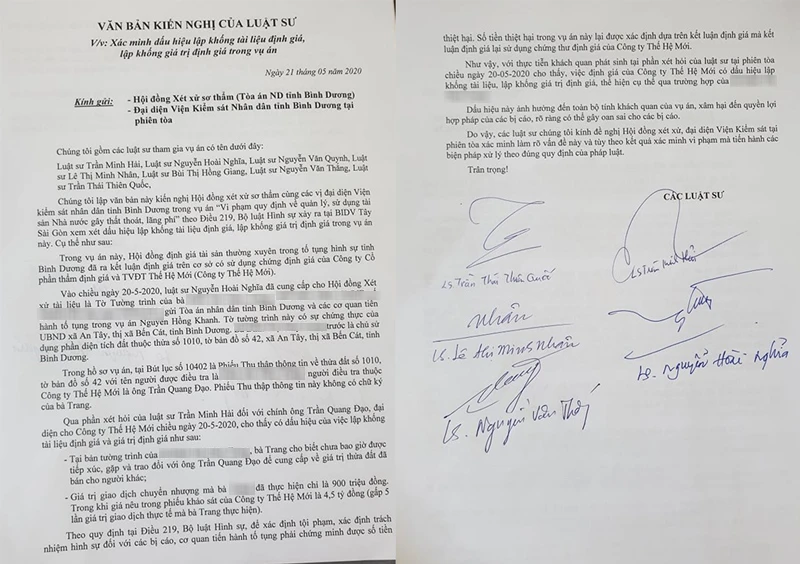 VĂN BẢN KIẾN NGHỊ CỦA LUẬT SƯ
V/v: Xác minh dấu hiệu lập khống tài liệu định giá,
lập khống giá trị định giá trong vụ án
Ngày 21 tháng 05 năm 2020
Kính gửi: - Hội đồng Xét xử sơ thẩm (Tòa án ND tỉnh Bình Dương)
- Đại diện Viện Kiểm sát Nhân dân tỉnh Bình Dương tại
phiên tòa
Chúng tôi gồm các luật sư tham gia vụ án có tên dưới đây:
Luật sư Trần Minh Hải, Luật sư Nguyễn Hoài Nghĩa, Luật sư Nguyễn Văn Quynh, Luật
sư Lê Thị Minh Nhân, Luật sư Bùi Thị Hồng Giang, Luật sư Nguyễn Văn Thắng, Luật sư
Trần Thái Thiên Quốc,
Chúng tôi lập văn bản này kiến nghị Hội đồng xét xử sơ thẩm cùng các vị đại diện Viện
kiểm sát nhân dân tỉnh Bình Dương trong vụ án “Vi phạm quy định về quản lý, sử dụng tài
sản Nhà nước gây thất thoát, lãng phí” theo Điều 219, Bộ luật Hình sự xảy ra tại BIDV Tây
Sài Gòn xem xét dấu hiệu lập khống tài liệu định giá, lập khống giá trị định giá trong vụ án
này. Cụ thể như sau:
Trong vụ án này, Hội đồng định giá tài sản thường xuyên trong tố tụng hình sự tỉnh
Bình Dương đã ra kết luận định giá trên cơ sở có sử dụng chứng định giá của Công ty Cổ
phần thẩm định giá và TVĐT Thế Hệ Mới (Công ty Thế Hệ Mới).
Vào chiều ngày 20-5-2020, luật sư Nguyễn Hoài Nghĩa đã cung cấp cho Hội đồng Xét
xử tài liệu là Tờ Tường trình của bà
gửi Tòa án nhân dân tỉnh Bình Dương và các cơ quan tiến
hành tố tụng trong vụ án Nguyễn Hồng Khanh. Tờ tường trình này có sự chứng thực của
UBND xã An Tây, thị xã Bến Cát, tỉnh Bình Dương. trước là chủ sử
dụng phần diện tích đất thuộc thửa số 1010, tờ bản đồ số 42, xã An Tây, thị xã Bến Cát, tỉnh
Bình Dương.
Trong hồ sơ vụ án, tại Bút lục số 10402 là Phiếu Thu thập thông tin về thửa đất số 1010,
tờ bản đồ số 42 với tên người được điều tra là người điều tra thuộc
Công ty Thế Hệ Mới là ông Trần Quang Đạo. Phiếu Thu thập thông tin này không có chữ ký
của bà Trang.
Qua phần xét hỏi của luật sư Trần Minh Hải đối với chính ông Trần Quang Đạo, đại
diện cho Công ty Thế Hệ Mới chiều ngày 20-5-2020, cho thấy có dấu hiệu của việc lập khống
tài liệu định giá và giá trị định giá như sau:
- Tại bản tường trình của , bà Trang cho biết chưa bao giờ được
tiếp xúc, gặp và trao đổi với ông Trần Quang Đạo để cung cấp về giá trị thửa đất đã
bán cho người khác;
- Giá trị giao dịch chuyển nhượng mà bà đã thực hiện chỉ là 900 triệu đồng.
Trong khi giá nêu trong phiếu khảo sát của Công ty Thế Hệ Mới là 4,5 tỷ đồng (gấp 5
lần giá trị giao dịch thực tế mà bà Trang thực hiện).
Theo quy định tại Điều 219, Bộ luật Hình sự, để xác định tội phạm, xác định trách
nhiệm hình sự đối với các bị cáo, cơ quan tiến hành tố tụng phải chứng minh được số tiền
thiệt hại. Số tiền thiệt hại trong vụ án này lại được xác định dựa trên kết luận định giá mà kết
luận định giá lại sử dụng chứng thư định giá của Công ty Thế Hệ Mới.
Như vậy, với thực tiễn khách quan phát sinh tại phần xét hỏi của luật sư tại phiên tòa
chiều ngày 20-05-2020 cho thấy, việc định giá của Công ty Thế Hệ Mới có dấu hiệu lập
khống tài liệu, lập khống giá trị định giá, thể hiện cụ thể qua trường hợp của
Dấu hiệu này ảnh hưởng đến toàn bộ tính khách quan của vụ án, xâm hại đến quyền lợi
hợp pháp của các bị cáo, rõ ràng có thể gây oan sai cho các bị cáo.
Do vậy, các luật sư chúng tôi kính đề nghị Hội đồng xét xử, đại diện Viện Kiểm sát tại
phiên tòa xác minh làm rõ vấn đề này và tùy theo kết quả xác minh vi phạm mà tiến hành các
biện pháp xử lý theo đúng quy định của pháp luật.
Trân trọng!
CÁC LUẬT SƯ
LS Trần Thái Thiên Quốc
LS Trần Minh Hải
Nhân
LS. Lê Thị Minh Nhân
LS. Nguyễn Hoài Nghĩa
LS. Nguyễn Văn Thắng